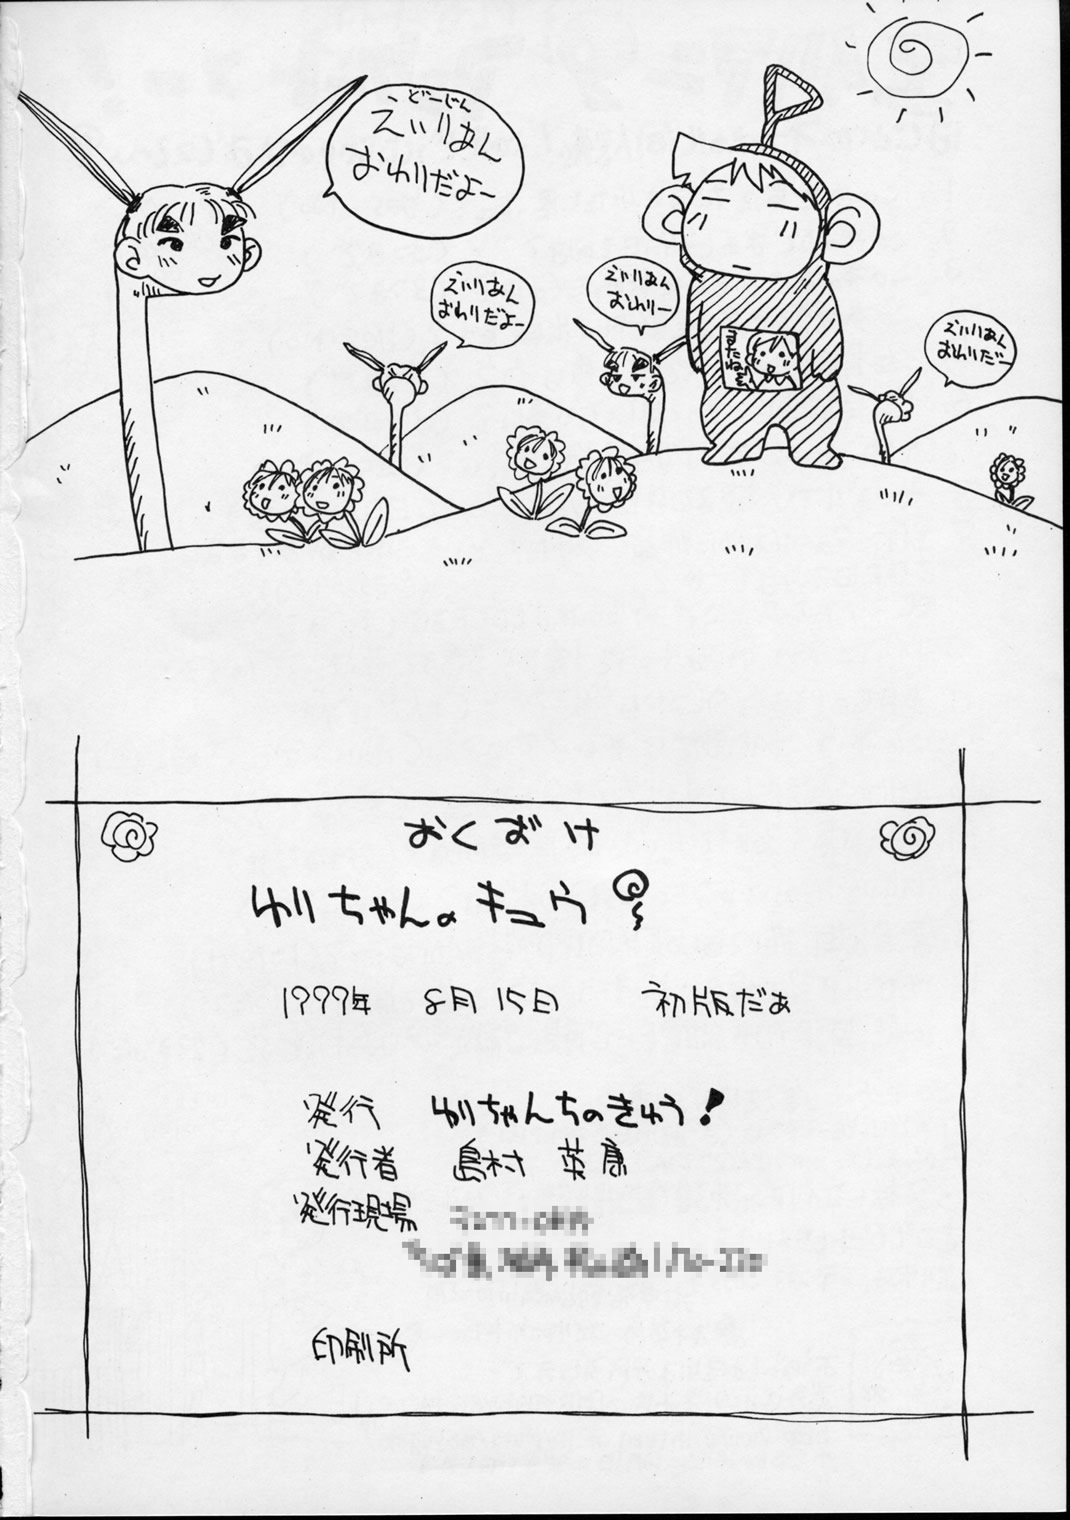 どーじん
えいりあん
おわりだよー
えいりあん
おわりだよー
えいりあん
おわりー
えいりあん
おわりだー
またねー
おくづけ
ゆりちゃんの キュウ
1999年 8月15日 初版だぁ
発行 ゆりちゃんちのきゅう!
発行者 島村 英康
発行現場
印刷所